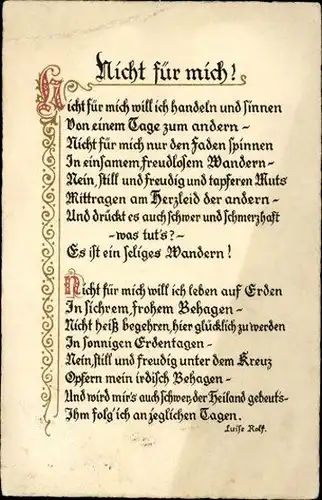 Nicht für mich!
Nicht für mich will ich handeln und sinnen
Von einem Tage zum andern –
Nicht für mich nur den Faden spinnen
In einsamem freudlosem Wandern –
Nein, still und freudig und tapferen Muts
Mittragen am Herzleid der andern –
Und drückt es auch schwer und schmerzhaft
– was tut's? –
Es ist ein seliges Wandern!
Nicht für mich will ich leben auf Erden
In sichrem, frohem Behagen –
Nicht heiß begehren, hier glücklich zu werden
In sonnigen Erdentagen –
Nein, still und freudig unter dem Kreuz
Opfern mein irdisch Behagen –
Und wird mir's auch schwer, der Heiland gebeut's –
Ihm folg' ich an jeglichen Tagen.
Luise Rolf.